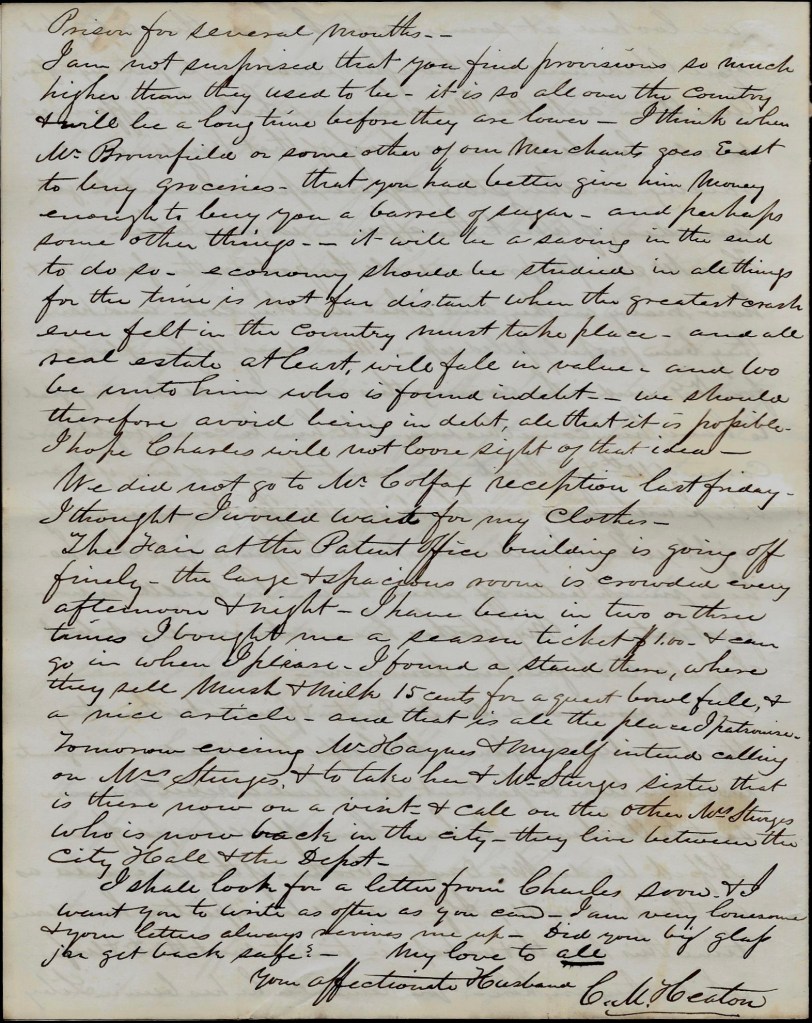 Prison for several months --
I am not surprised that you find provisions so much
higher than they used to be - it is so all over the Country
& will be a long time before they are lower - I think when
Mr. Brownfield or some other of our Merchants goes East
to buy groceries - that you had better give him Money
enough to buy you a barrel of sugar - and perhaps
some other things -- it will be a saving in the end
to do so - economy should be studied in all things
for the time is not far distant when the greatest crash
ever felt in the Country must take place - and all
real estate at least, will fall in value - and Wo
be unto him who is found in debt -- we should
therefore avoid being in debt, all that it is possible -
I hope Charles will not loose sight of that idea -
We did not go to Mr Colfax reception last friday -
I thought I would wait for my Clothes -
The Fair at the Patent office building is going off
finely - the large & spacious room is crowded every
afternoon & night - I have been in two or three
times I bought me a season ticket $1.00 - & can
go in when I please - I found a stand there, where
they sell Mush & Milk 15 cents for a quart bowl full, &
a nice article - and that is all the place I patronise -
Tomorrow evening Mr Haynes & Myself intend calling
on Mrs Sturges, & to take her & Mr Sturges sister that
is there now on a visit - & call on the other Mrs Sturges
who is now back in the city - they live between the
City Hall & the Depot -
I shall look for a letter from Charles soon - & I
want you to write as often as you can - I am very lonesome
& your letters always revives me up - Did your big glass
jar get back safe? - My love to all
Your affectionate Husband
C. M. Heaton